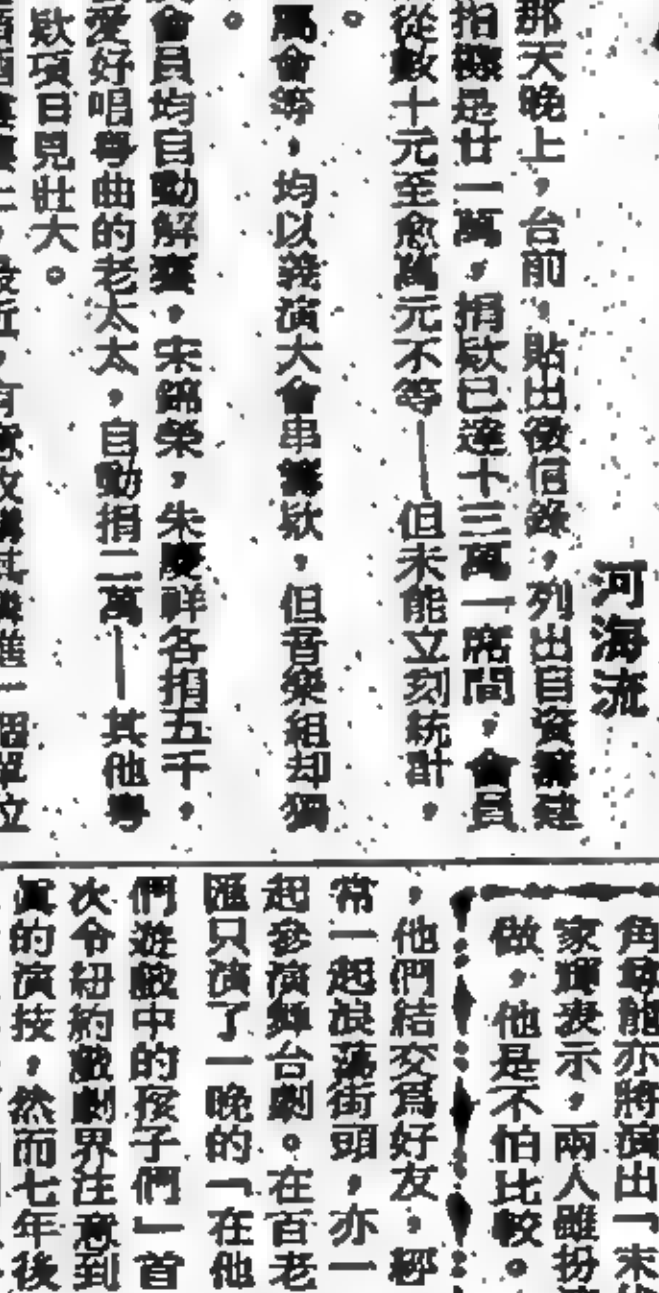 河海流
那天晚上，台前，貼出徵信錄，列出自資籌建
指標是廿一萬，捐欵已達十三萬一席間，會員
從數十元至愈萬元不等——但未能立刻統計，
。
屬會等，均以義演大會串籌欵，但音樂組却獨
。
會員均自動解囊，宋錦榮，朱慶祥各捐五千，
愛好唱粵曲的老太太，自動捐二萬——其他粵
欵項日見壯大。
最近，有意
一個單位
角色能亦將演出「末
家輝表示，兩人雖扮
做，他是不怕比較。
，他們結交爲好友，經
常一起浪蕩街頭，亦一
起參演舞台劇。在百老
匯只演了一晚的「在他
們遊戲中的孩子們」首
次令紐約戲劇界注意到
眞的演技，然而七年後